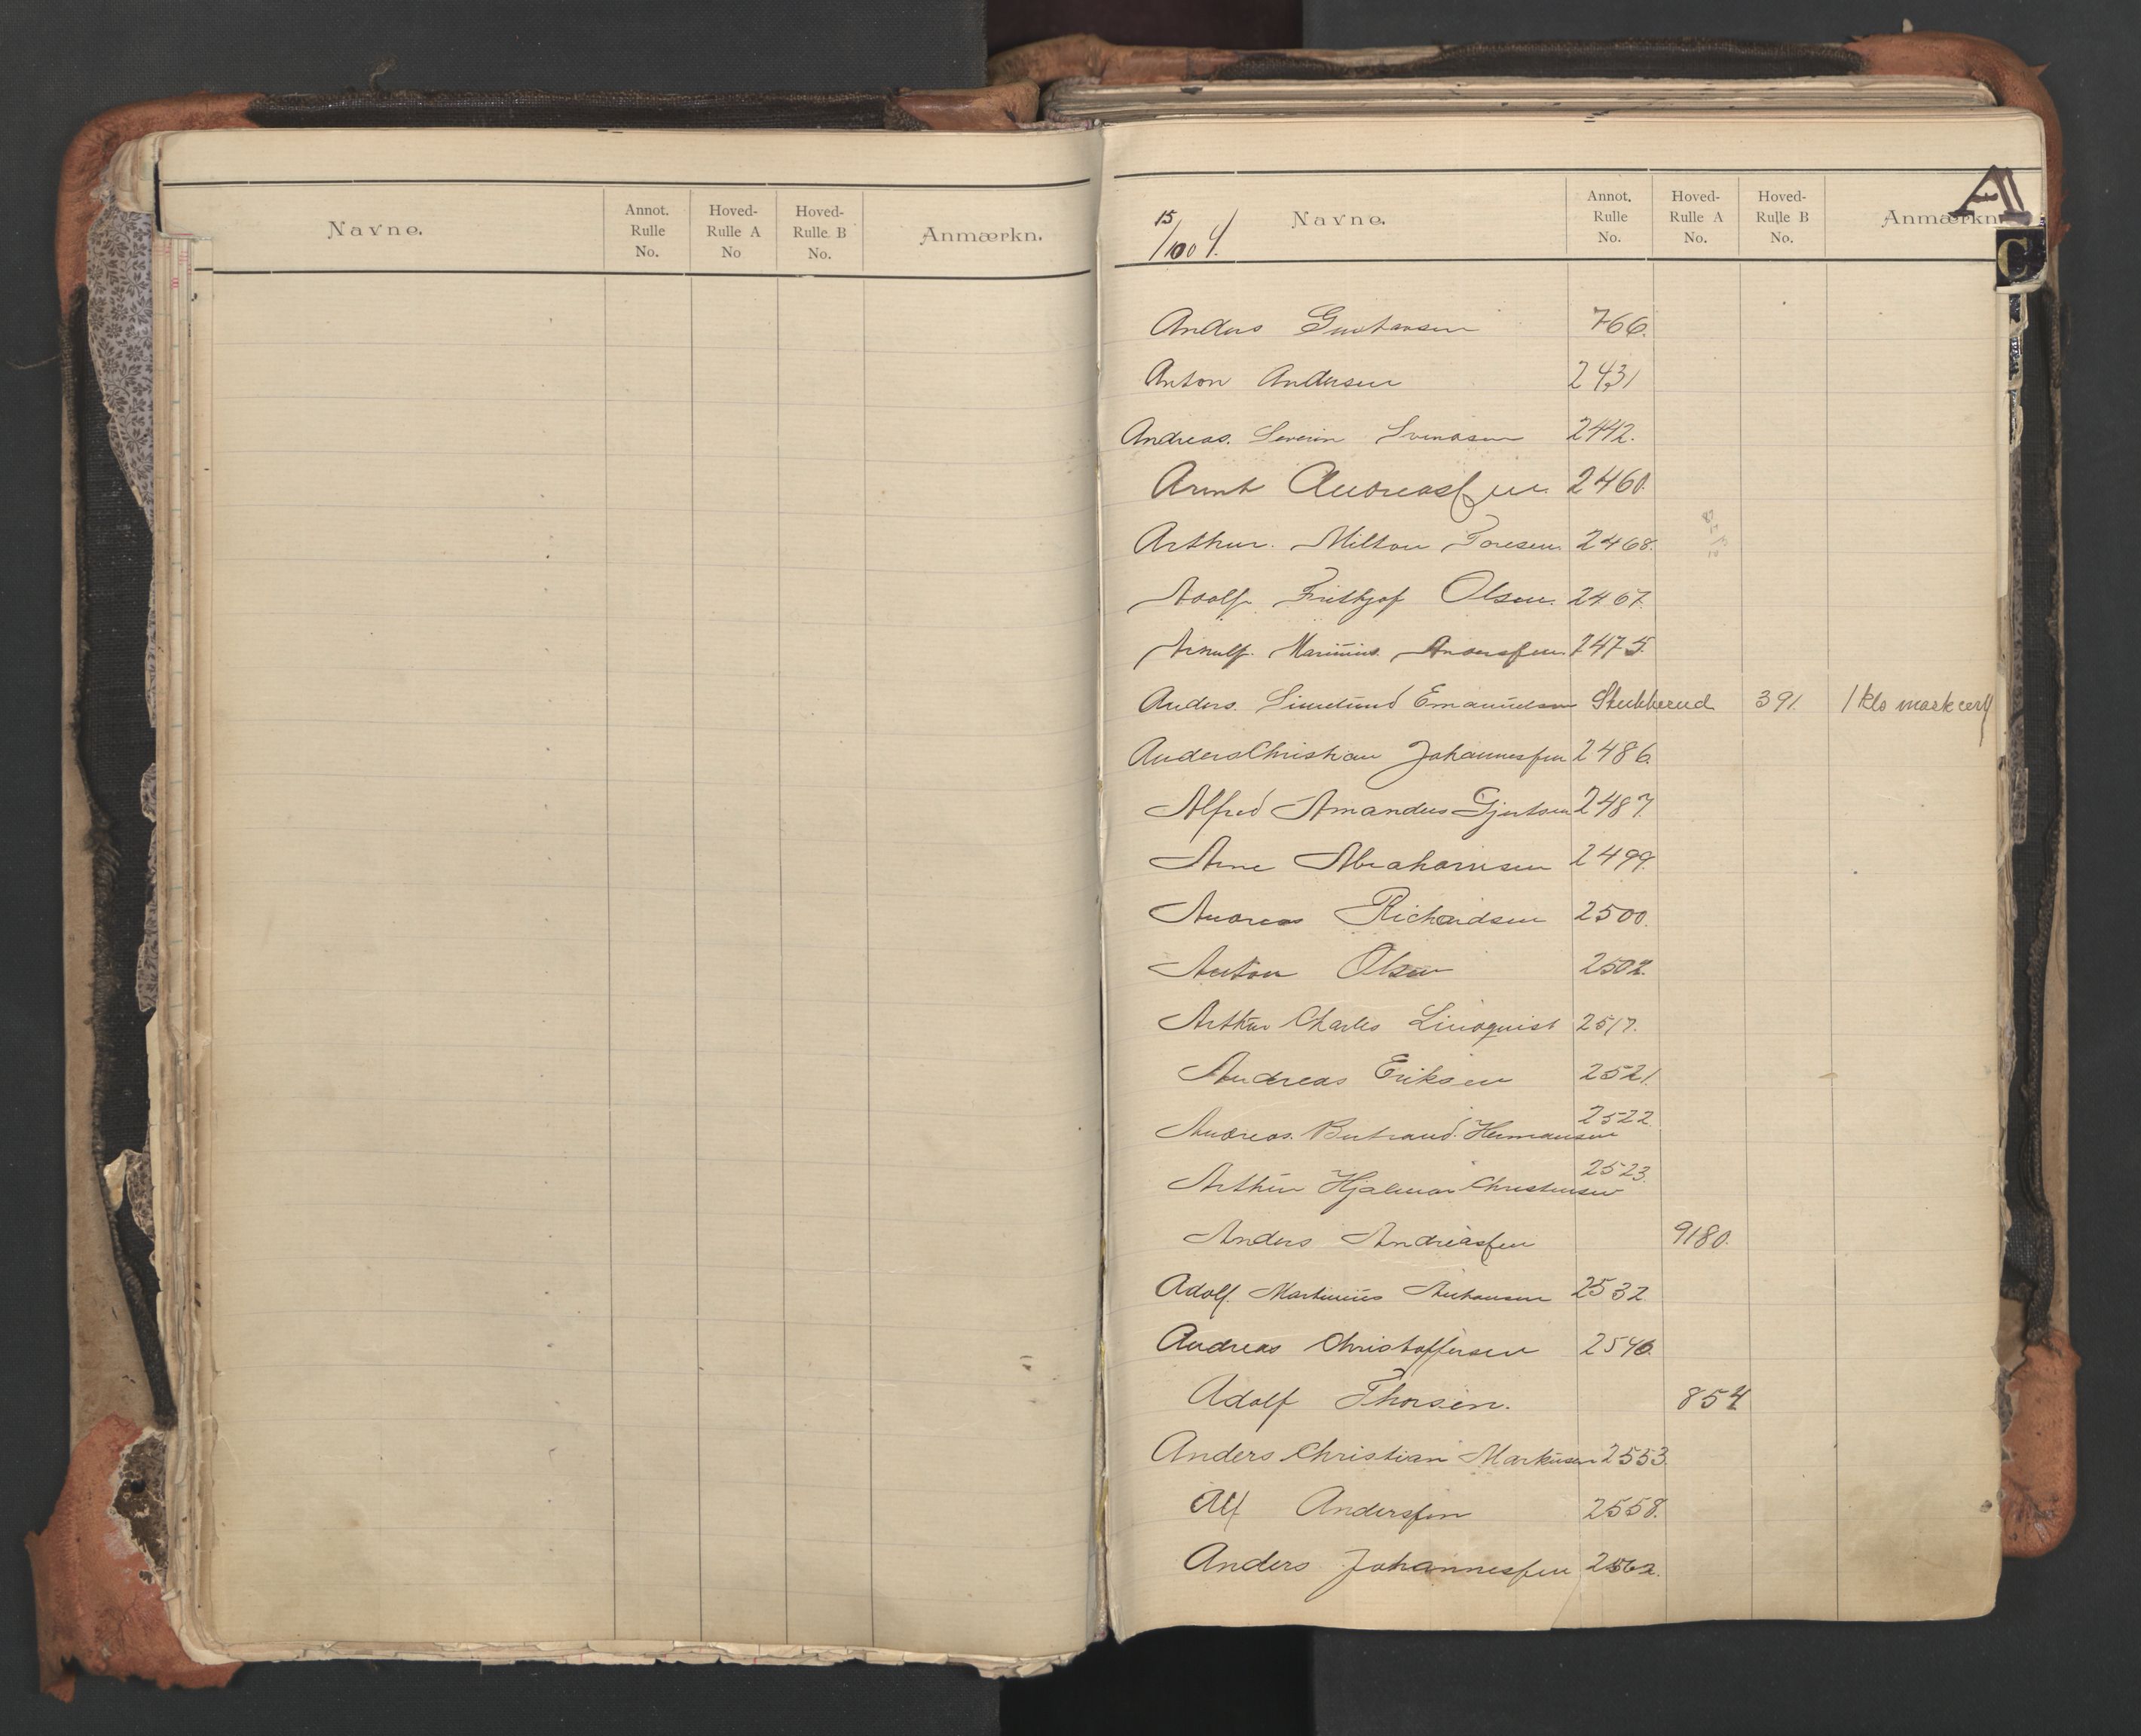 Navne.
Annot. Rulle No.
Hoved-Rulle A No
Hoved-Rulle B No.
Anmærkn.
A
C
15/10 04.
Navne.
Annot. Rulle No.
Hoved-Rulle A No.
Hoved-Rulle B No.
Anmærkn
Anders Gustavsen 766.
Anton Andersen 2431
Andreas. Severin Svendsen 2442.
Arnt Andreassen. 2460.
Arthur. Milton Toresen 2468.
Adolf Frithjof Olsen. 2467.
Arnulf. Marinius. Anderssen 2475.
Anders. Emanuelsen Stubberud 391. 1 kls mask cert
Anders Christian Johannessen 2486.
Alfred Amandus Gjertsen 2487.
Arne Abrahamsen 2499.
Andreas Richardsen 2500.
Anton Olsen 2502.
Arthur Charles Lindquist 2517.
Andreas Eriksen 2521.
Andreas. Bertrand. Hermansen 2522.
Arthur Hjalmar Christensen 2523.
Anders Andreassen 9180.
Adolf. Martinius 2532
Andreas Christoffersen 2546.
Adolf Thorsen. 854
Anders Christian Markusen 2553.
Alf Anderssen 2558.
Anders Johannessen 2562.